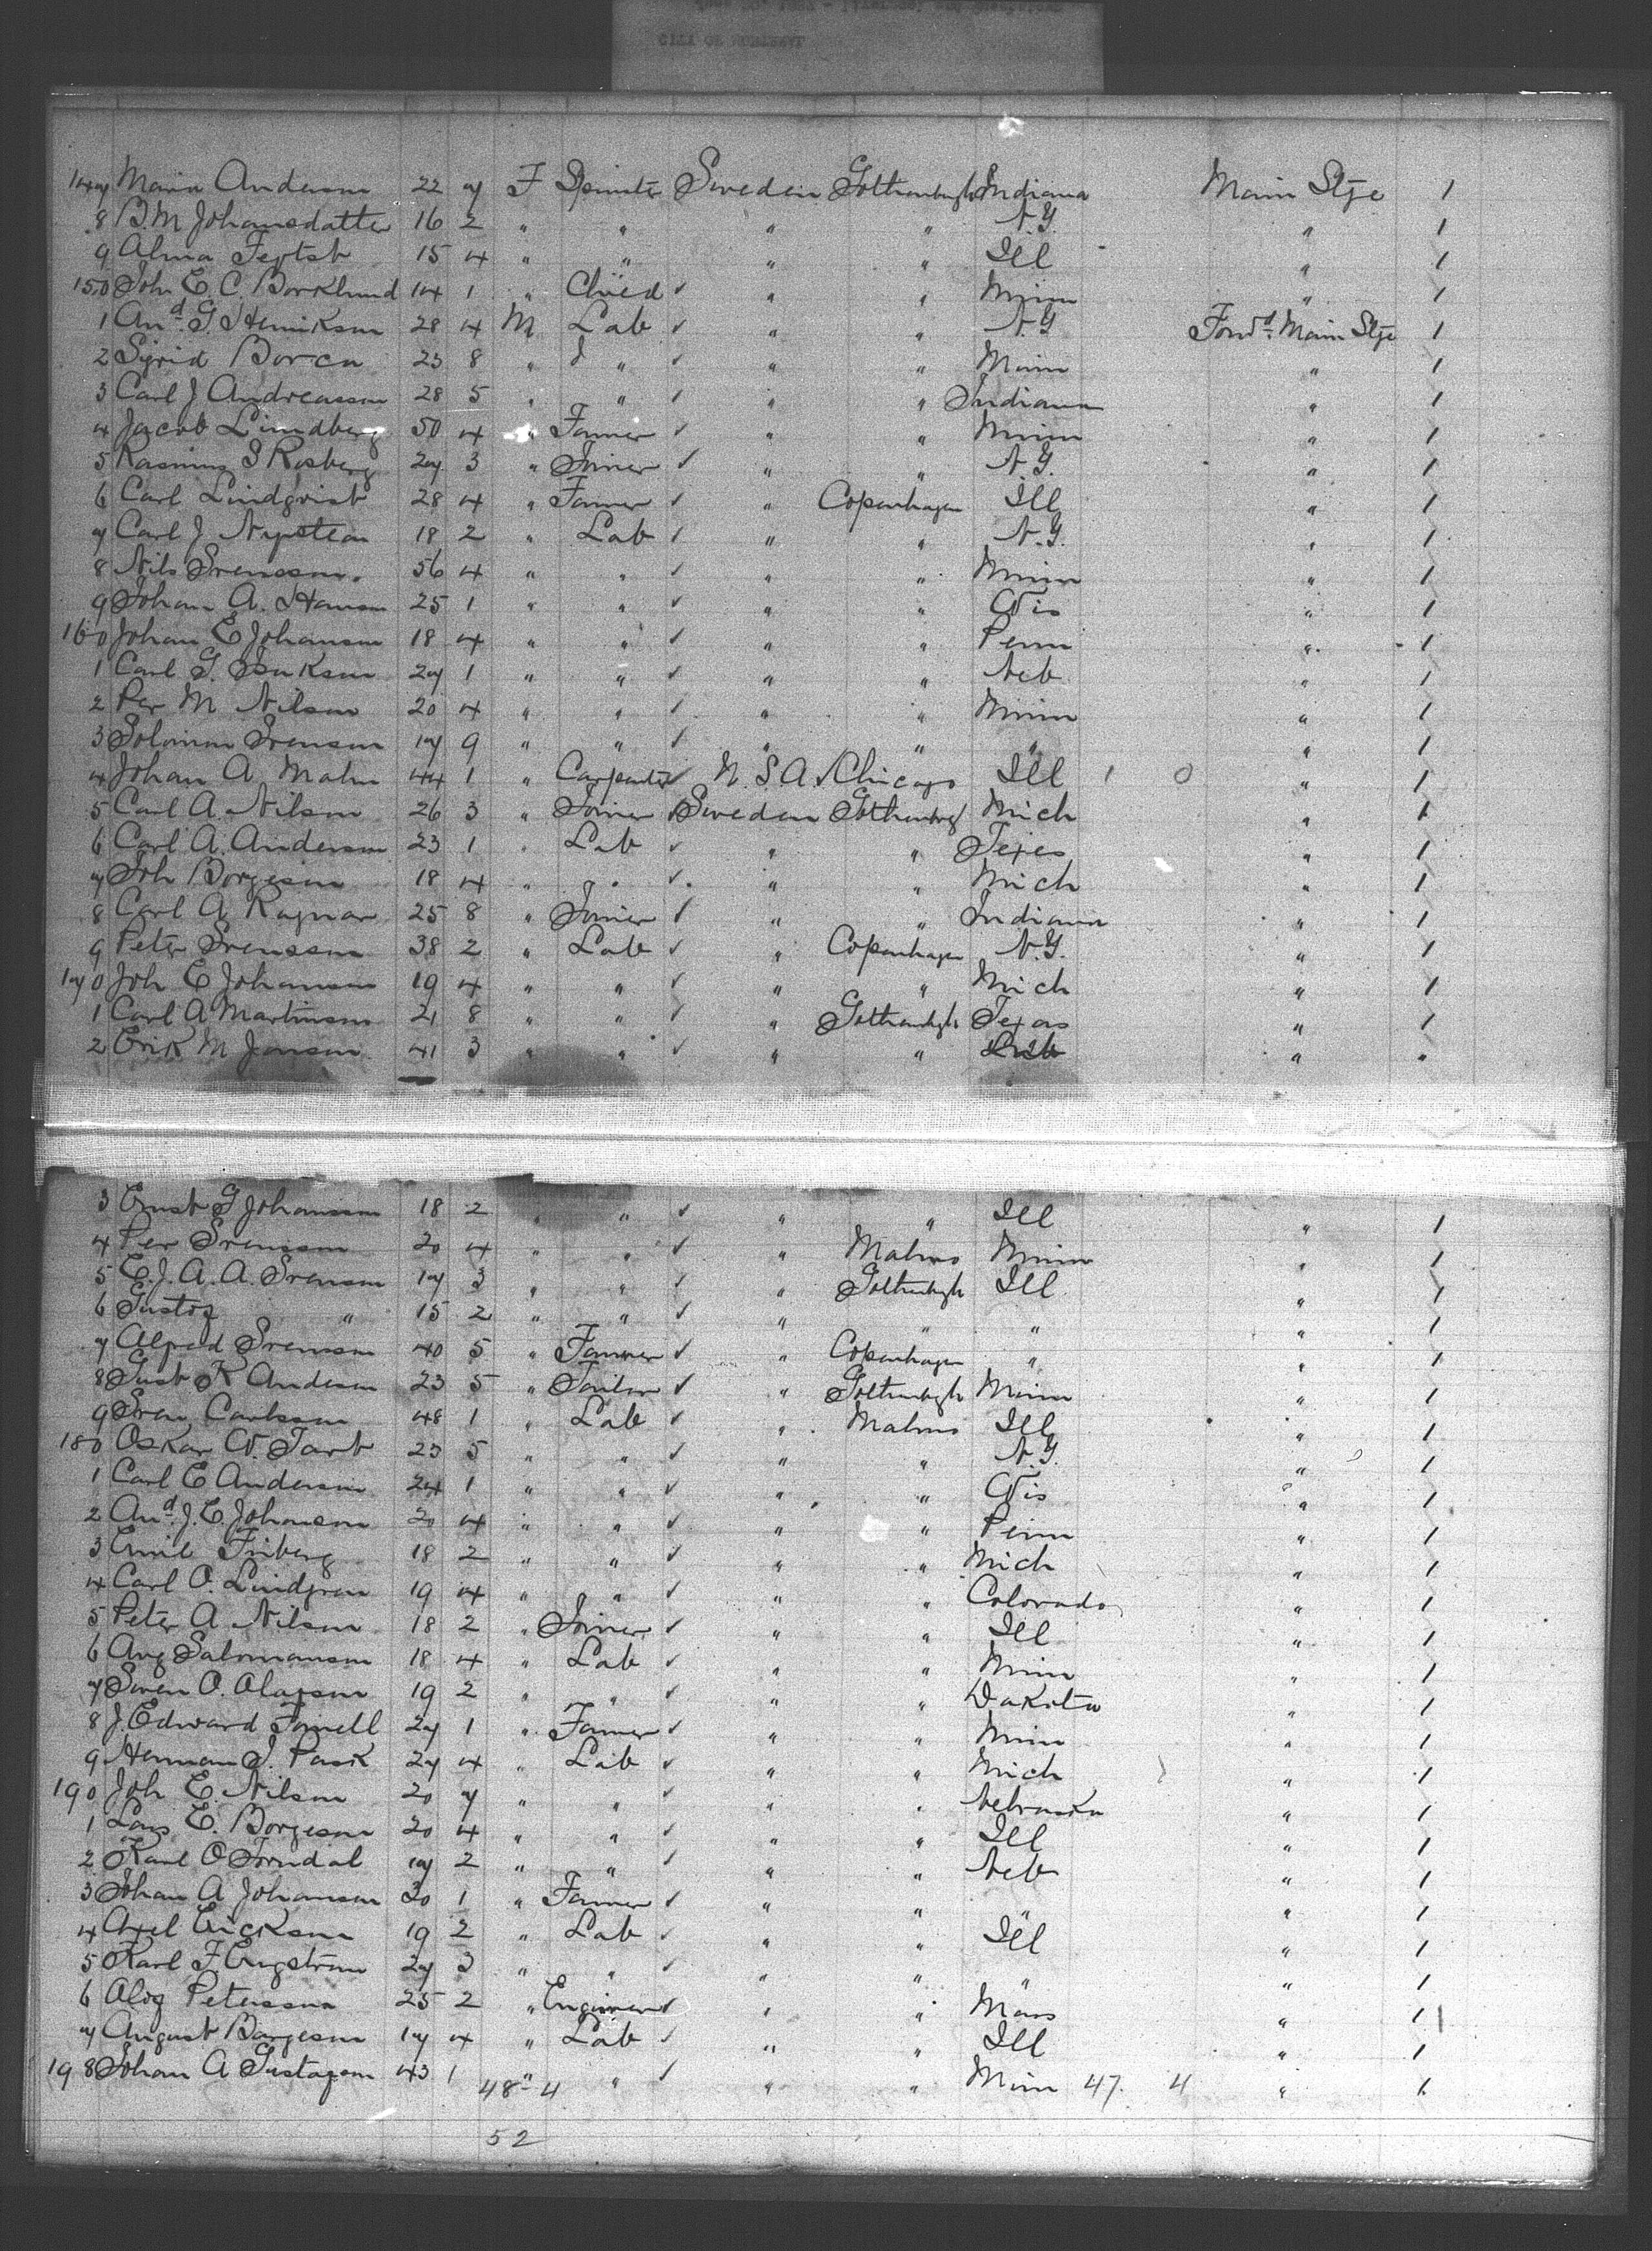 147 Maria Anderson 22 7 F Spinster Sweden Gothenburgh Indiana Main Stge 1
8 B.M Johansdatter 16 2 " " " " N.Y. " 1
9 Alma 15 4 " " " " Ill " 1
150 Joh E. C. Borklund 14 1 " Child ✓ " " Minn " 1
1 And. G. Henrikson 28 4 M Lab ✓ " " N.Y Forwd Main Stge 1
2 Sigrid 23 8 " " ✓ " " Minn " 1
3 Carl J Andreasson 28 5 " " ✓ " " Indiana " 1
4 Jacob Lindberg 50 4 " Farmer ✓ " " Minn " 1
5 Rasmus S Rosberg 27 3 " Joiner ✓ " " N.Y. " 1
6 Carl Lindqvist 28 4 " Farmer ✓ " Copenhagen Ill " 1
7 Carl J. 18 2 " Lab ✓ " " N.Y. " 1
8 Nils Svensson 56 4 " " ✓ " " Minn " 1
9 Johan A. Hanson 25 1 " " ✓ " " Wis " 1
160 Johan E Johanson 18 4 " " ✓ " " Penn " 1
1 Carl G. 27 1 " " ✓ " " Neb " 1
2 Per M Nilson 20 4 " " ✓ " " Minn " 1
3 Solomon Svenson 17 9 " " ✓ " " " " 1
4 Johan A. Malm 44 1 " Carpenter ✓ U.S.A. Chicago Ill 1 0 " 1
5 Carl A. Nilson 26 3 " Joiner Sweden Gothenburg Mich " 1
6 Carl A. Anderson 23 1 " Lab ✓ " " Texes " 1
7 Joh Borgeson 18 4 " " ✓ " " Mich " 1
8 Carl A Ragnar 25 8 " Joiner ✓ " " Indiana " 1
9 Peter Svensson 38 2 " Lab ✓ " Copenhagen N.Y. " 1
170 Joh E Johanson 19 4 " " ✓ " " Mich " 1
1 Carl A Martinson 21 8 " " ✓ " Gothenburgh Texas " 1
2 Erik M Janson 41 3 " " ✓ " " " "
3 Ernst G Johansson 18 2 " " ✓ " " Ill " 1
4 Per Svensson 20 4 " " ✓ " Malmo Minn " 1
5 E.J.A.A. Svenson 17 3 " " ✓ " Gothenburgh Ill " 1
6 Gustof " 15 2 " " ✓ " " " " 1
7 Alfred Svenson 40 5 " Farmer ✓ " Copenhagen " " 1
8 Gust K Anderson 23 5 " Tailor ✓ " Gothenburgh Minn " 1
9 Sven Carlsson 48 1 " Lab ✓ " Malmo Ill " 1
180 Oskar W. 23 5 " " ✓ " " N.Y. " 1
1 Carl E Anderson 24 1 " " ✓ " " Wis " 1
2 And. J.E. Johanson 20 4 " " ✓ " " Penn " 1
3 Emil Friberg 18 2 " " ✓ " " Mich " 1
4 Carl O. Lindgren 19 4 " " ✓ " " Colorado " 1
5 Peter A Nilson 18 2 " Joiner ✓ " " Ill " 1
6 Aug Salomonson 18 4 " Lab ✓ " " Minn " 1
7 Swen O. Olafson 19 2 " " ✓ " " Dakota " 1
8 J. Edward 27 1 " Farmer ✓ " " Minn " 1
9 Herman J. Pask 27 4 " Lab ✓ " " Mich " 1
190 Joh E. Nilson 20 7 " " ✓ " " Nebraska " 1
1 Lars E. Borgeson 20 4 " " ✓ " " Ill " 1
2 Karl O 17 2 " " ✓ " " Neb " 1
3 Johan A Johanson 20 1 " Farmer ✓ " " " " 1
4 Axel Erickson 19 2 " Lab ✓ " " Ill " 1
5 Karl F Engstrom 27 3 " " ✓ " " " " 1
6 Alof Petersson 25 2 " Engineer ✓ " " Mass " 1
7 August Borgeson 17 4 " Lab ✓ " " Ill " 1
198 Johan A Gustafson 43 1 " " ✓ " " Minn 47. 4 " 1
48-4
52